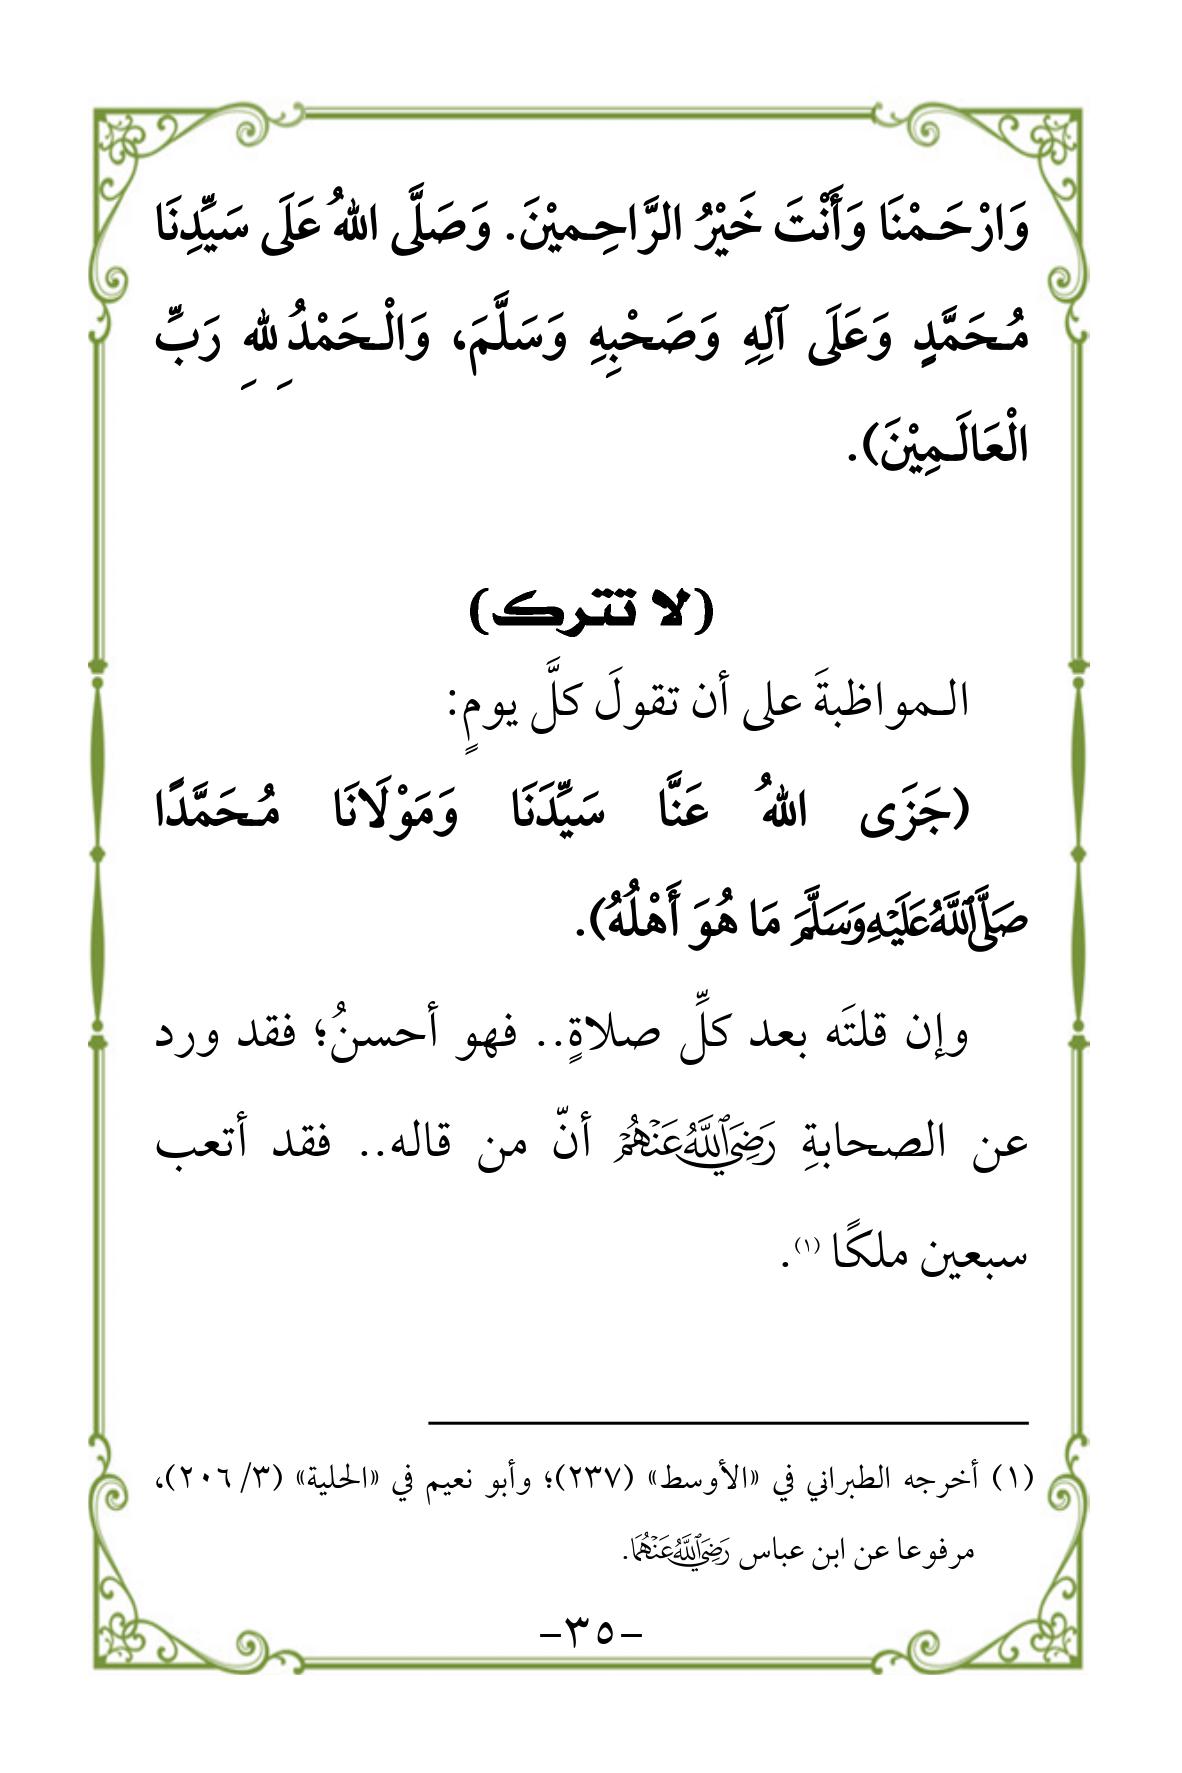 وَارْحَـمْنَا وَأَنْتَ خَيْرُ الرَّاحِـميْنَ. وَصَلَّى اللهُ عَلَى سَيِّدِنَا
مُـحَمَّدٍ وَعَلَى آلِهِ وَصَحْبِهِ وَسَلَّمَ، وَالْـحَمْدُ لِلهِ رَبِّ
الْعَالَـمِيْنَ).
(لا تترك)
الـمواظبةَ على أن تقولَ كلَّ يومٍ:
(جَزَى اللهُ عَنَّا سَيِّدَنَا وَمَوْلَانَا مُـحَمَّدًا
صَلَّى اللَّهُ عَلَيْهِ وَسَلَّمَ مَا هُوَ أَهْلُهُ).
وإن قلتَه بعد كلِّ صلاةٍ.. فهو أحسنُ؛ فقد ورد
عن الصحابةِ رَضِيَ اللَّهُ عَنْهُمْ أنّ من قاله.. فقد أتعب
سبعين ملكًا (١).
(١) أخرجه الطبراني في «الأوسط» (٢٣٧)؛ وأبو نعيم في «الحلية» (٣/ ٢٠٦)،
مرفوعا عن ابن عباس رَضِيَ اللَّهُ عَنْهُمَا.
-٣٥-